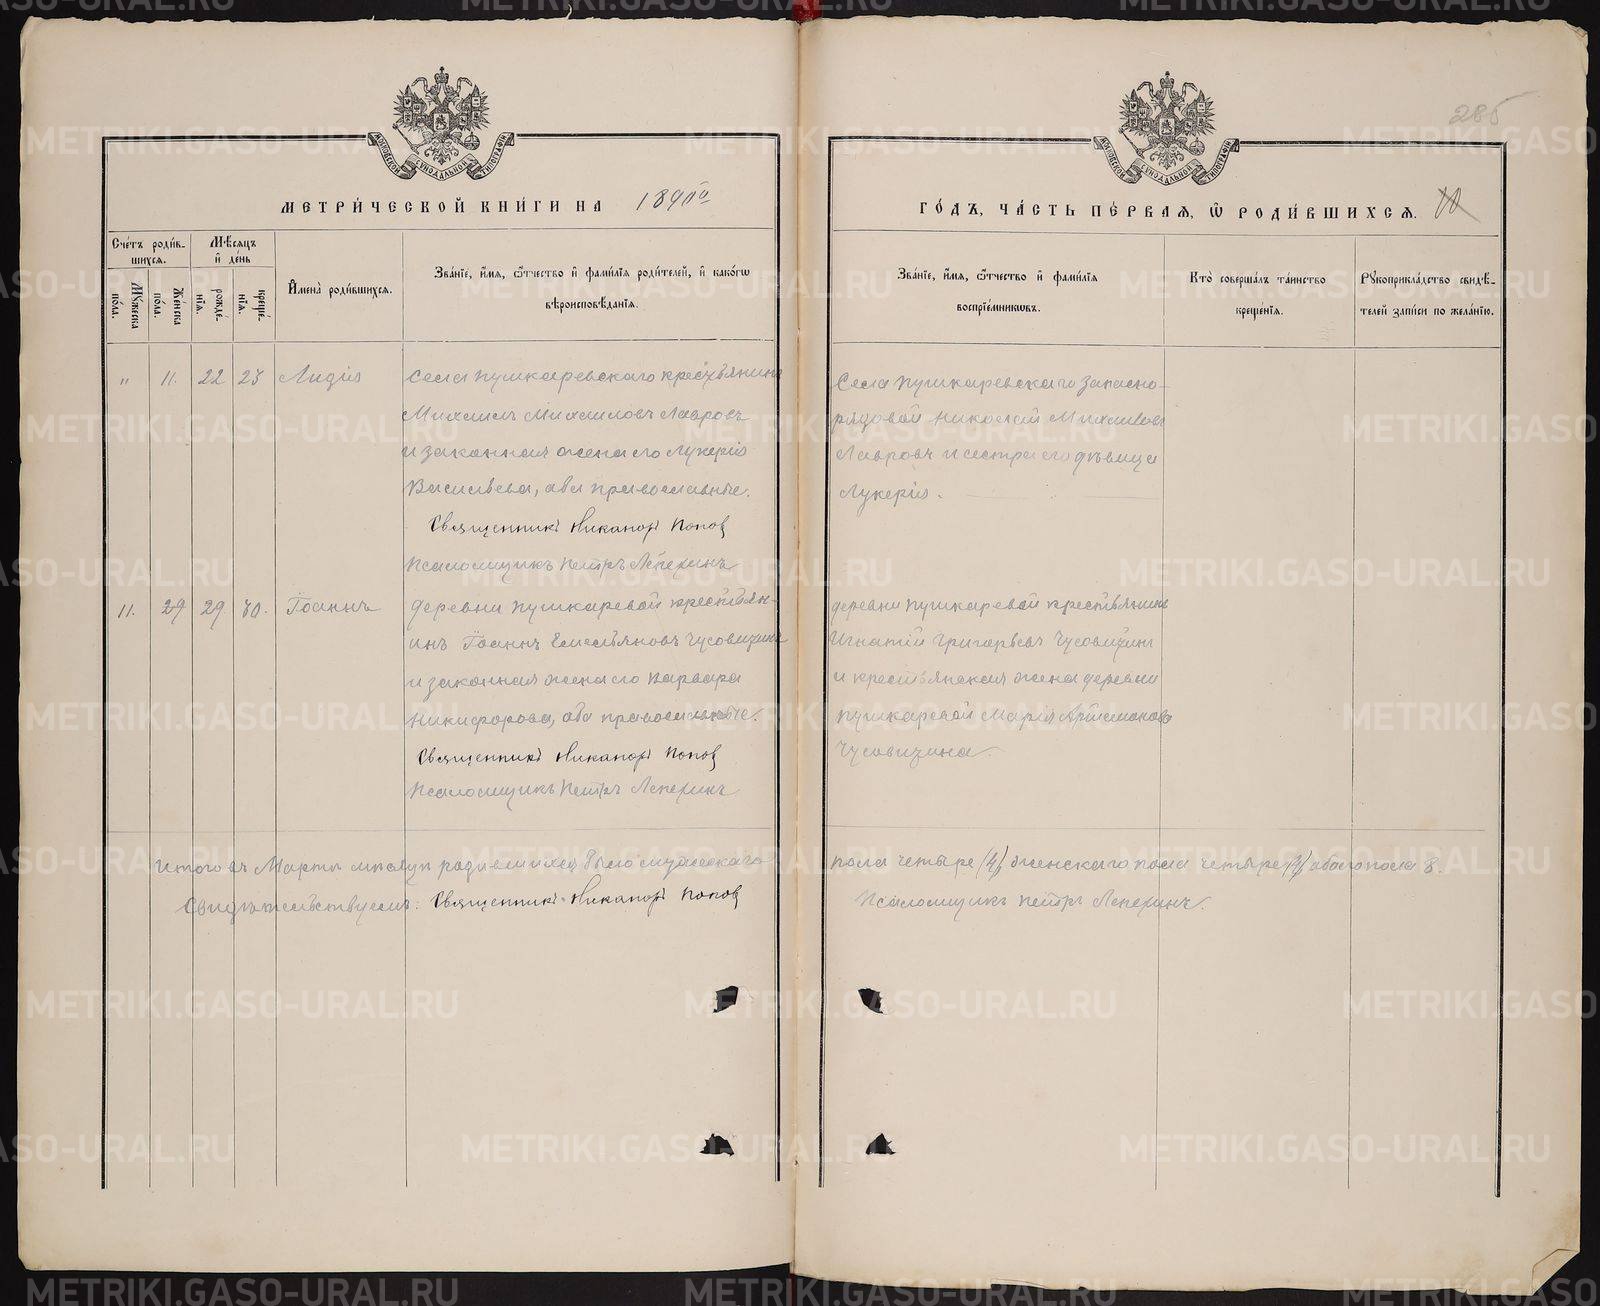 285
МОСКОВСКОЙ СѴНОДАЛЬНОЙ ТИПОГРАФІИ
МОСКОВСКОЙ СѴНОДАЛЬНОЙ ТИПОГРАФІИ
МЕТРИ́ЧЕСКОЙ КНИ́ГИ НА 1890й
ГО́ДЪ, ЧА́СТЬ ПЕ́РВАѦ, Ѽ РОДИ́ВШИХСѦ. 10
Сче́тъ роди́в-
шихсѧ.
Мꙋ́жеска пола.
Же́нска пола.
Мѣ́сѧцъ
и҆ де́нь
рожде́-
нїѧ.
креще́-
нїѧ.
И҆мена̀ роди́вшихсѧ.
Зва́нїе, и҆́мѧ, ѻ҆́тчество и҆ фами́лїѧ роди́телей, и҆ како́гѡ
вѣроисповѣ́данїѧ.
Зва́нїе, и҆́мѧ, ѻ҆́тчество и҆ фами́лїѧ
воспрїе́мникѡвъ.
Кто̀ соверша́лъ та́инство
креще́нїѧ.
Рꙋкоприкла́дство свидѣ́-
телей за́писи по жела́нїю.
" 11. 22 23 Лидія
Села Пушкаревскаго крестьянинъ
Михаилъ Михаиловъ Лавровъ
и законная жена его Лукерія
Васильева, оба православные.
Священникъ Никаноръ Поповъ
Псаломщикъ Петръ Лепехинъ
Села Пушкаревскаго запасно-
рядовой Николай Михаиловъ
Лавровъ и сестра его дѣвица
Лукерія.
11. 29 29 30. Іоаннъ
деревни Пушкаревой крестьян-
инъ Іоаннъ Емельяновъ Чусовитинъ
и законная жена его Варвара
Никифорова, оба православные.
Священникъ Никаноръ Поповъ
Псаломщикъ Петръ Лепехинъ
деревни Пушкаревой крестьянинъ
Игнатій Григорьевъ Чусовитинъ
и крестьянская жена деревни
Пушкаревой Марія Артемонова
Чусовитина.
Итого въ Мартѣ мѣсяцѣ родившихся было мужескаго
пола четыре (4) женскаго пола четыре (4) обоего пола 8.
Свидѣтельствуемъ: Священникъ Никаноръ Поповъ
Псаломщикъ Петръ Лепехинъ.
METRIKI.GASO-URAL.RU